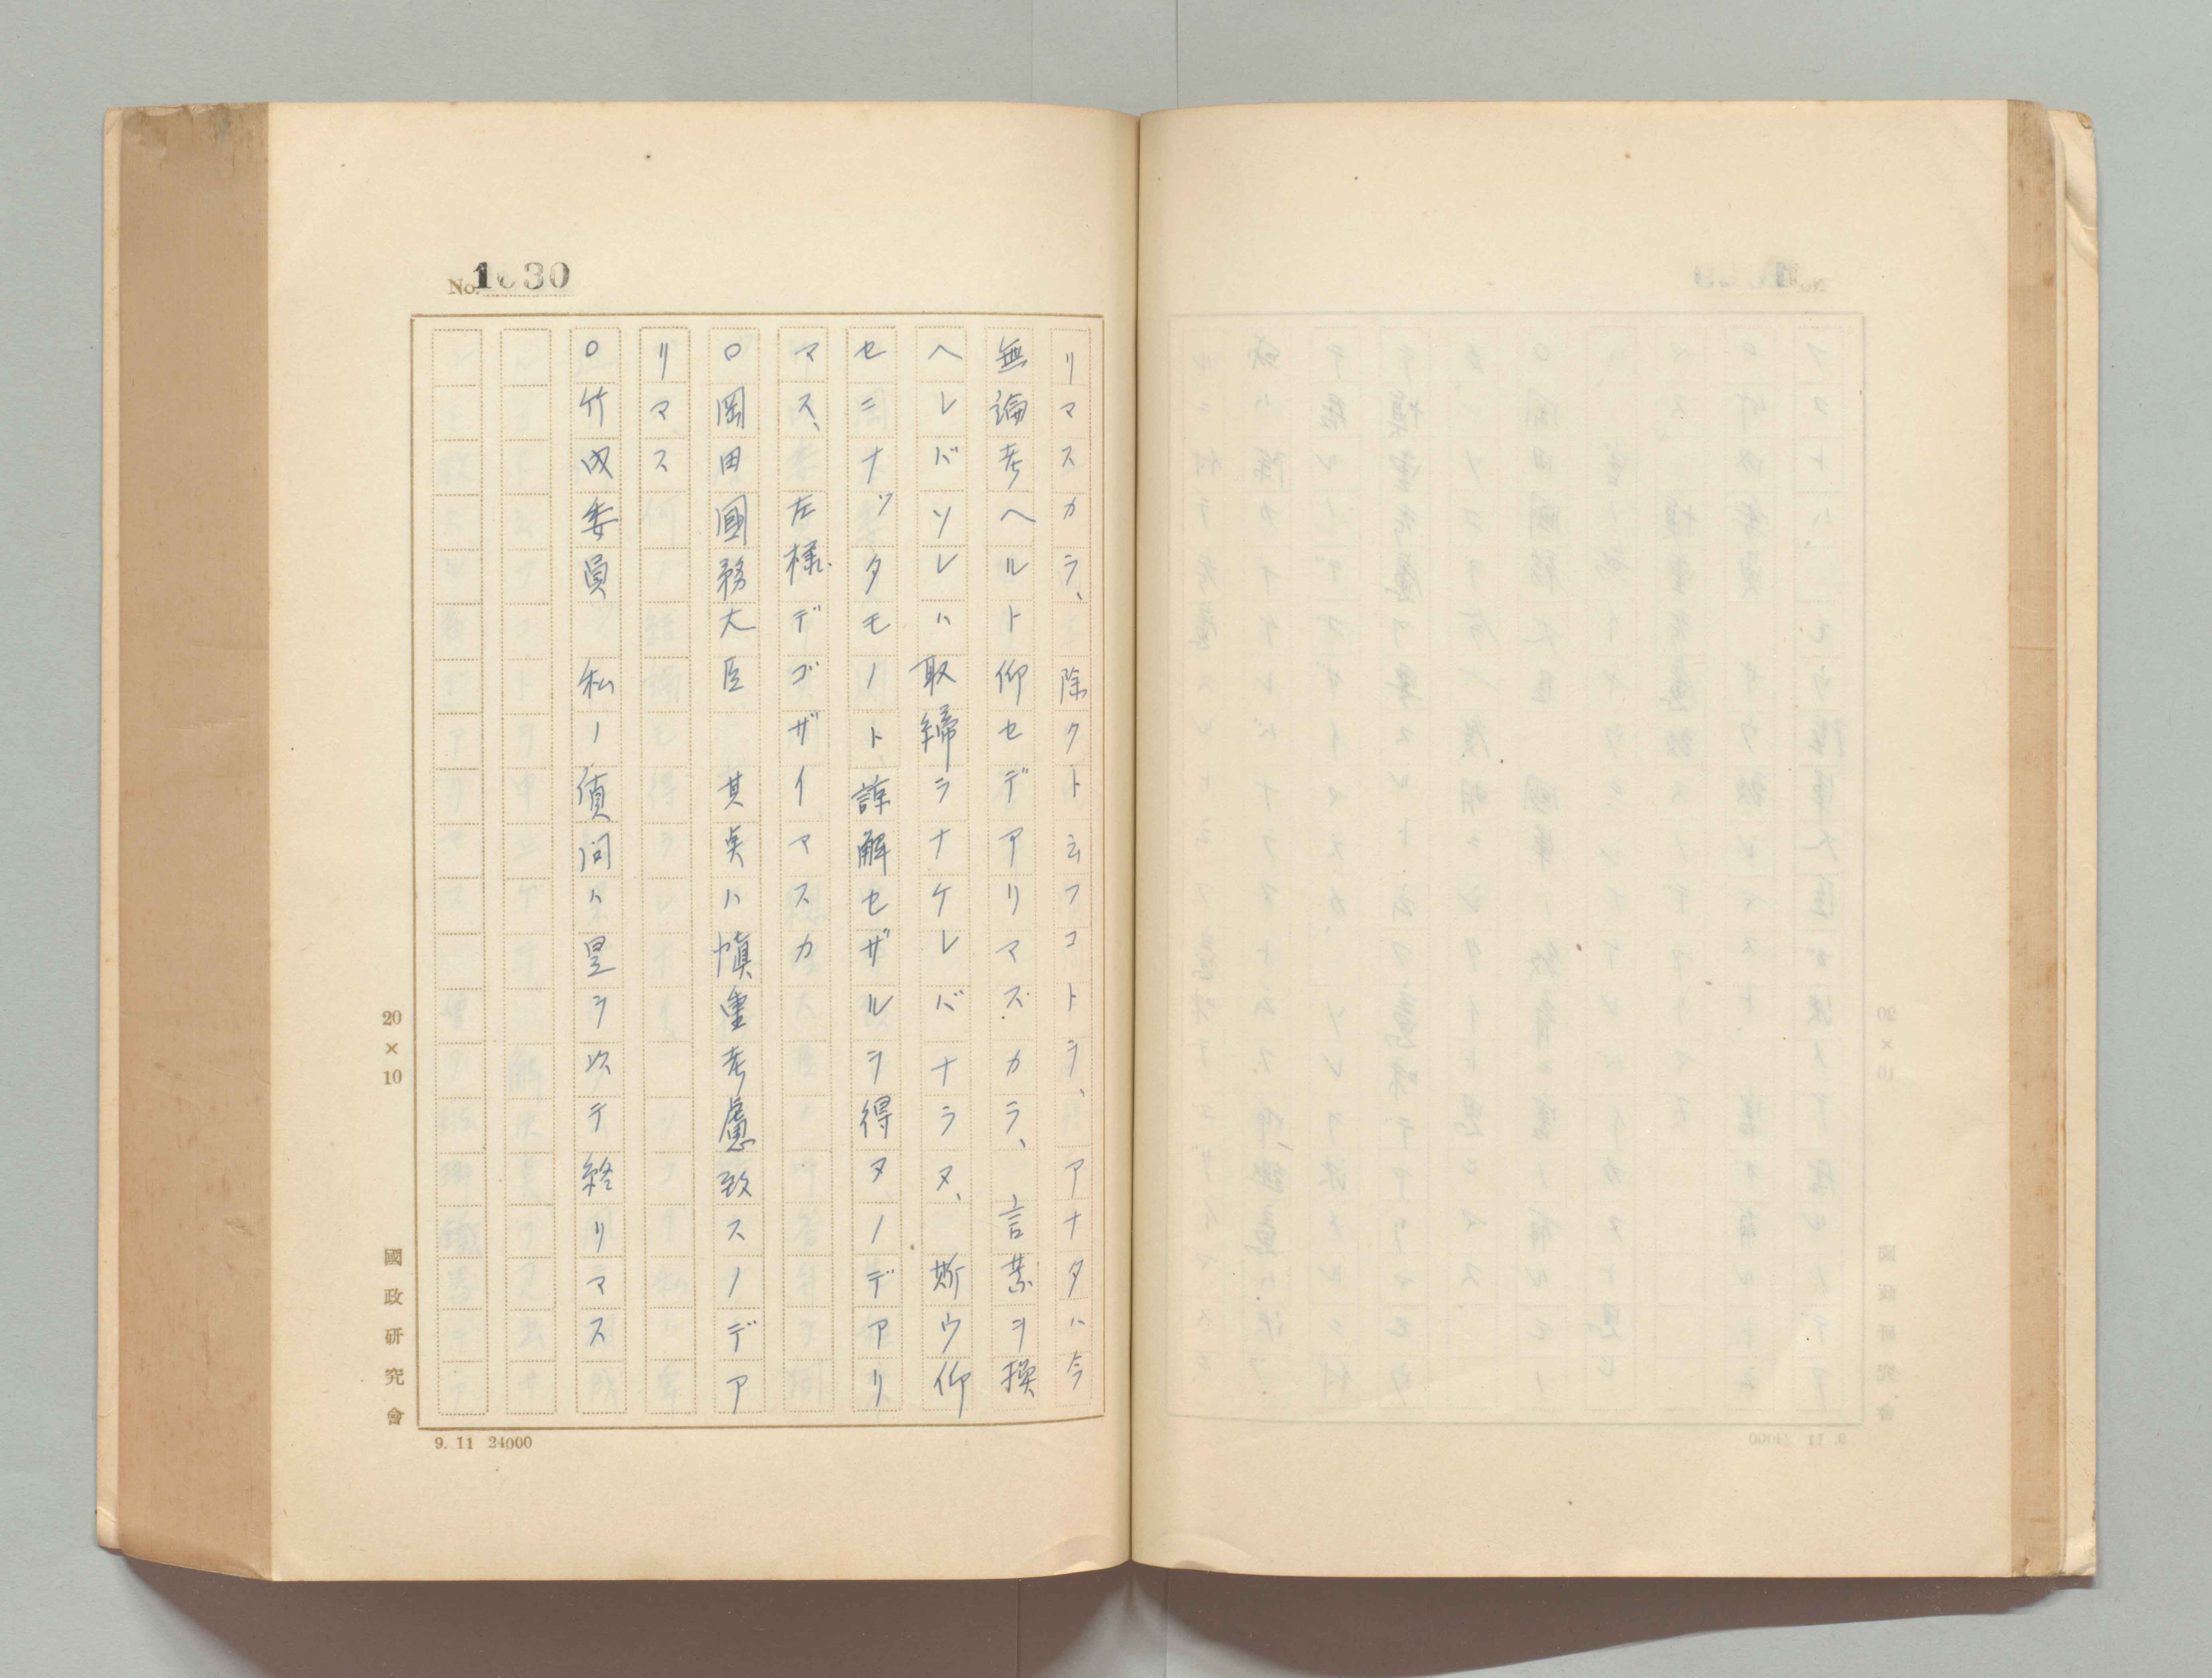 No. 1030
リマスカラ、除クト云フコトヲ、アナタハ今
無論考ヘルト仰セデアリマスカラ、言葉ヲ換
ヘレバソレハ取締ラナケレバナラヌ、斯ウ仰
セニナッタモノト、諒解セザルヲ得ヌノデアリ
マス、左様デゴザイマスカ
○岡田國務大臣 其点ハ慎重考慮致スノデア
リマス
○竹内委員 私ノ質問ハ是ヲ以テ終リマス
20×10
國政研究會
9. 11 24000